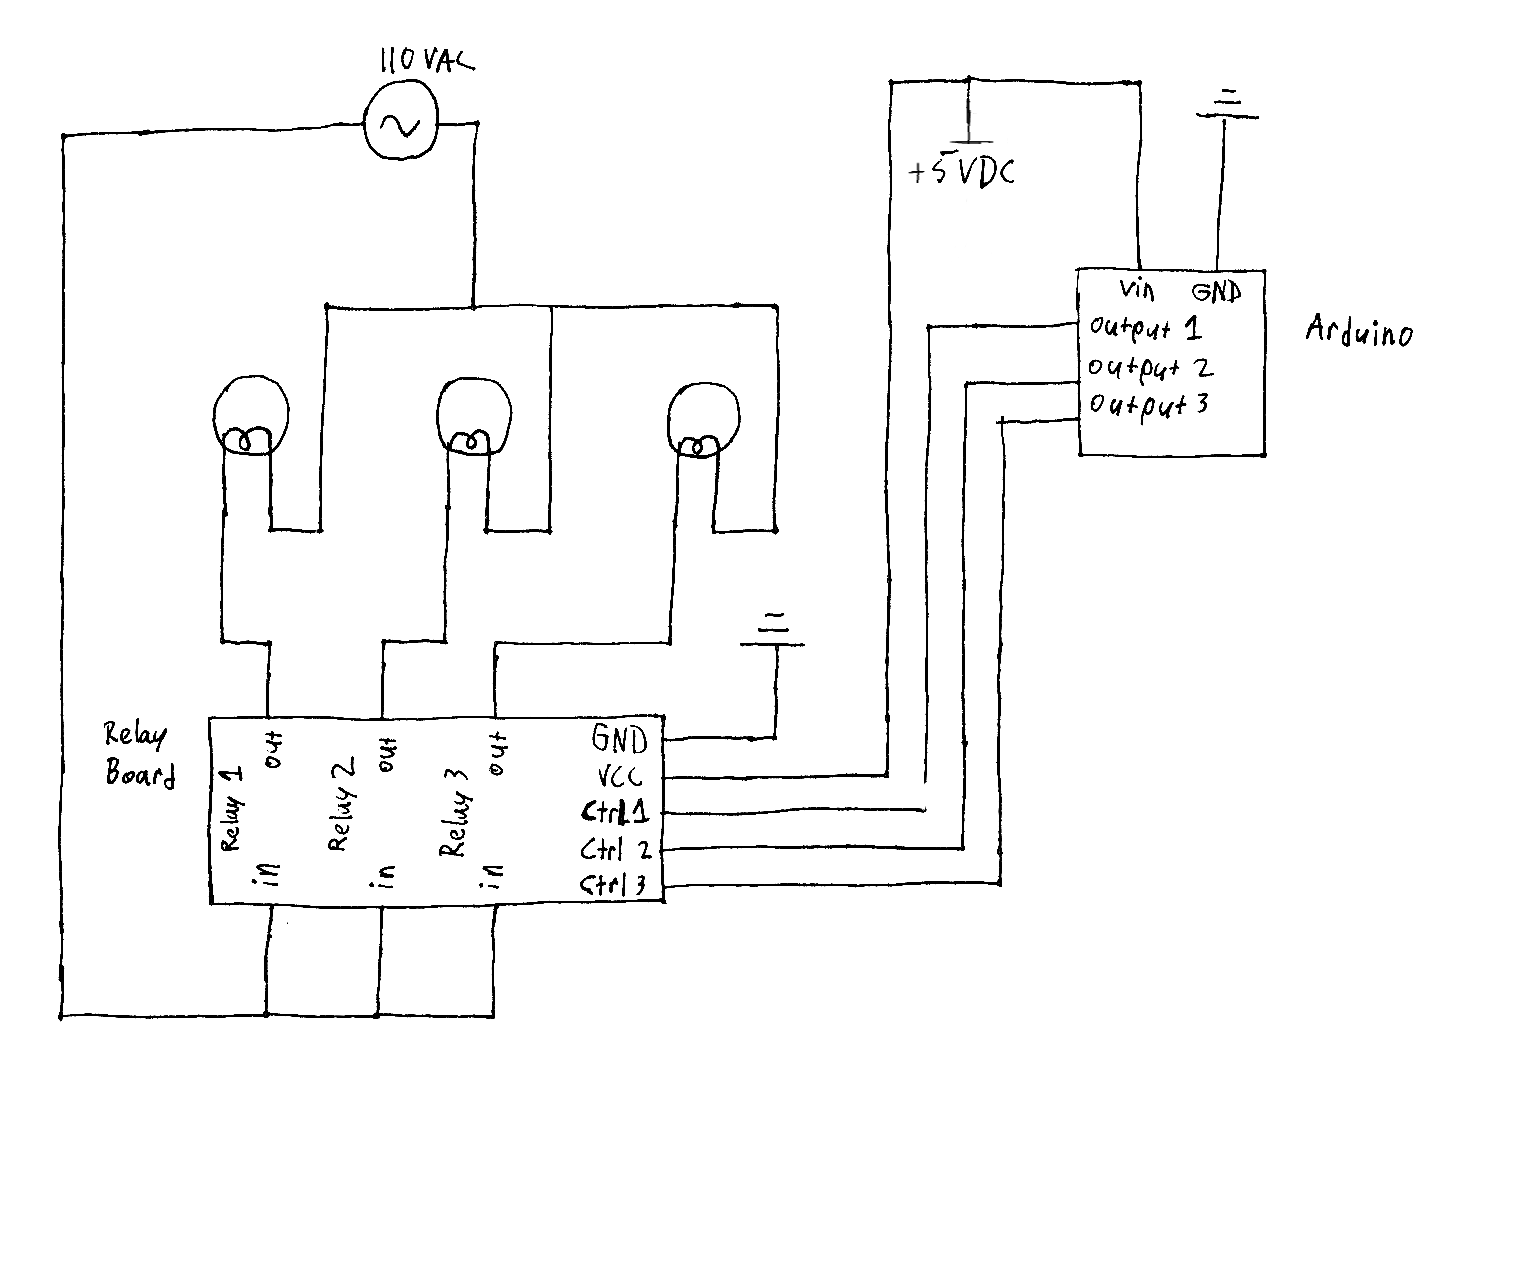 110 VAC
+5 VDC
Vin GND
output 1
output 2
output 3
Arduino
Relay
Board
Relay 1
out
in
Relay 2
out
in
Relay 3
out
in
GND
VCC
Ctrl 1
Ctrl 2
Ctrl 3